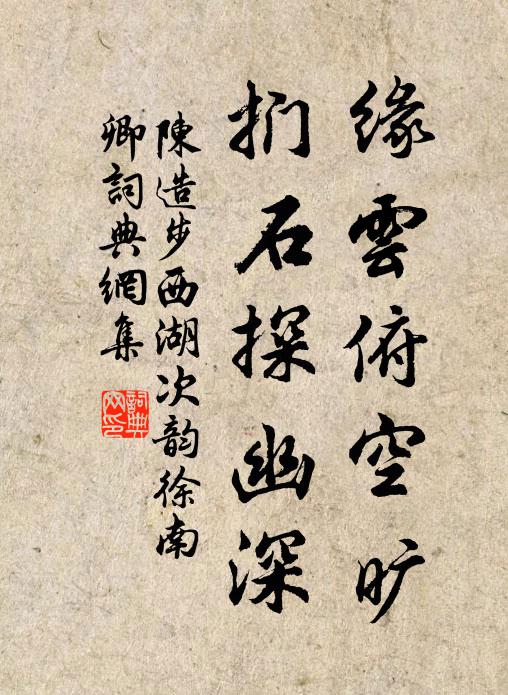 緣雲俯空旷
扪石探幽深
陳造步西湖次韵徐南
卿詞典網集
詞典
网印